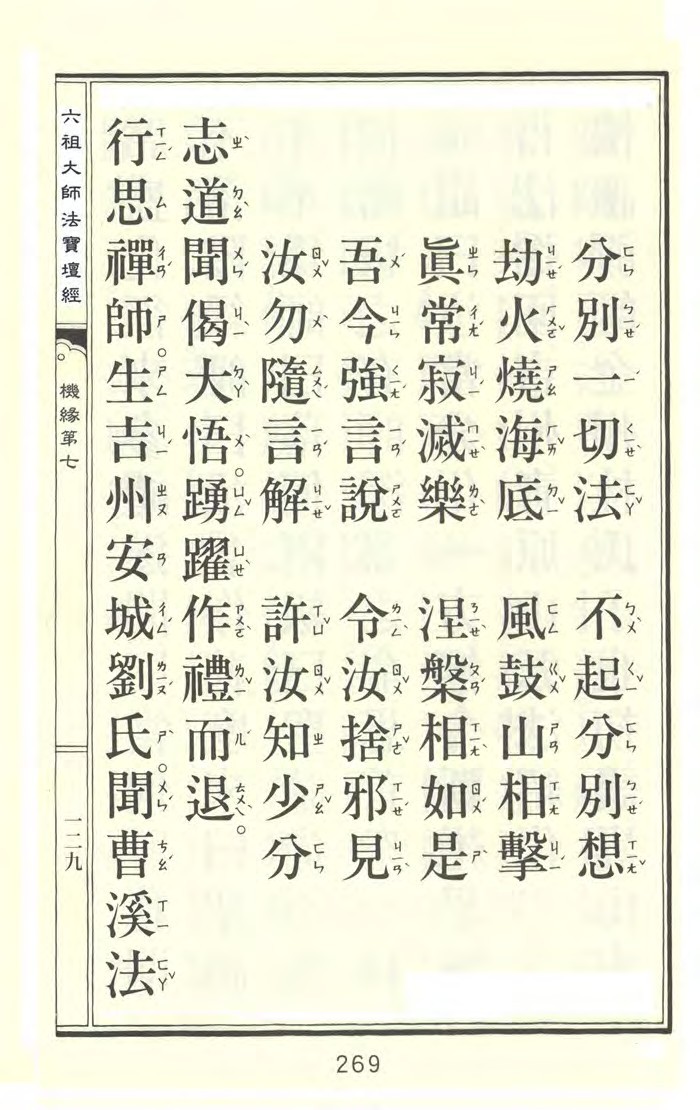 分別一切法　不起分別想
劫火燒海底　風鼓山相擊
眞常寂滅樂　涅槃相如是
吾今強言說　令汝捨邪見
汝勿隨言解　許汝知少分
志道聞偈大悟。踴躍作禮而退。
行思禪師。生吉州安城劉氏。聞曹溪法
六祖大師法寶壇經
機緣第七
一二九
269